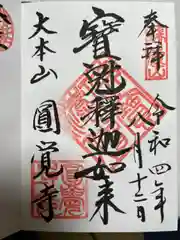 奉拝
令和四年
八月十二日
寳冠釋迦如来
大本山
圓覺寺